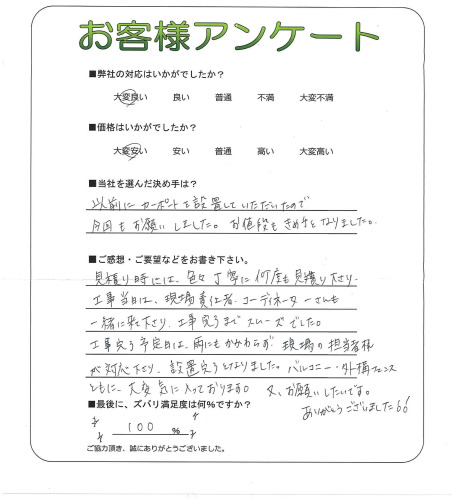 お客様アンケート
■弊社の対応はいかがでしたか？
大変良い 良い 普通 不満 大変不満
■価格はいかがでしたか？
大変安い 安い 普通 高い 大変高い
■当社を選んだ決め手は？
以前にカーポートを設置していただいたので
今回もお願いしました。お値段もきめ手となりました。
■ご感想・ご要望などをお書き下さい。
見積り時には、色々丁寧に何度も見積り下さり、
工事当日は、現場責任者、コーディネーターさんも
一緒に来て下さり、工事完了までスムーズでした。
工事完了予定日は、雨にもかかわらず、現場の担当者様
が対応下さり、設置完了となりました。バルコニー・外構フェンス
ともに、大変気に入っております。又、お願いしたいです。
ありがとうございました!!
■最後に、ズバリ満足度は何％ですか？
100 ％
ご協力頂き、誠にありがとうございました。